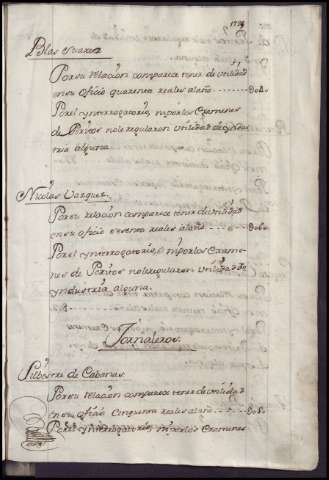 Blas Suarez
Por su relacion comparece tener de Utilidad
en su ofizio quarenta reales al año
Por el ynterrogatorio, ni por los Examenes
de Peritos no le regularon Utilidad de yndus
tria alguna
Nicolas Vazquez
Por su relacion comparece tener de Utilidad
en su ofizio sesenta reales al año
Por el ynterrogatorio, ni por los Exame
nes de Peritos no le regularon Utilidad de
yndustria alguna.
Jornaleros.
Silbestre de Cabanas
Por su relacion comparece tener de Utilidad
en su ofizio Cinquenta reales al año
Por el ynterrogatorio, ni por los Examenes